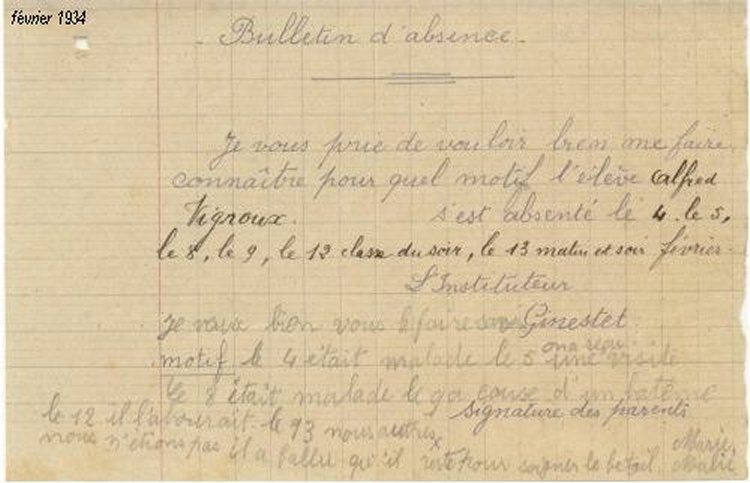 février 1934
- Bulletin d'absence -
Je vous prie de vouloir bien me faire
connaître pour quel motif l'élève Alfred
Vigroux. s'est absenté le 4. le 5,
le 8, le 9, le 12 classe du soir, le 13 matin et soir février.
L'Instituteur
Je veux bien vous le faire Ginestet
on a reçu
motif le 4 était malade le 5 une visite
le 8 était malade le 9 a couse d'un batême
signature des parents
le 12 il labourait. le 13 nous autres
nous n'étions pas il a fallu qu'il reste pour soigner le betail.
Marie